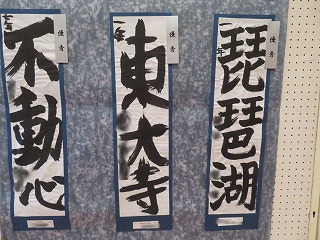 琵琶湖
一年
優秀
東大寺
一年
優秀
不動心
優秀